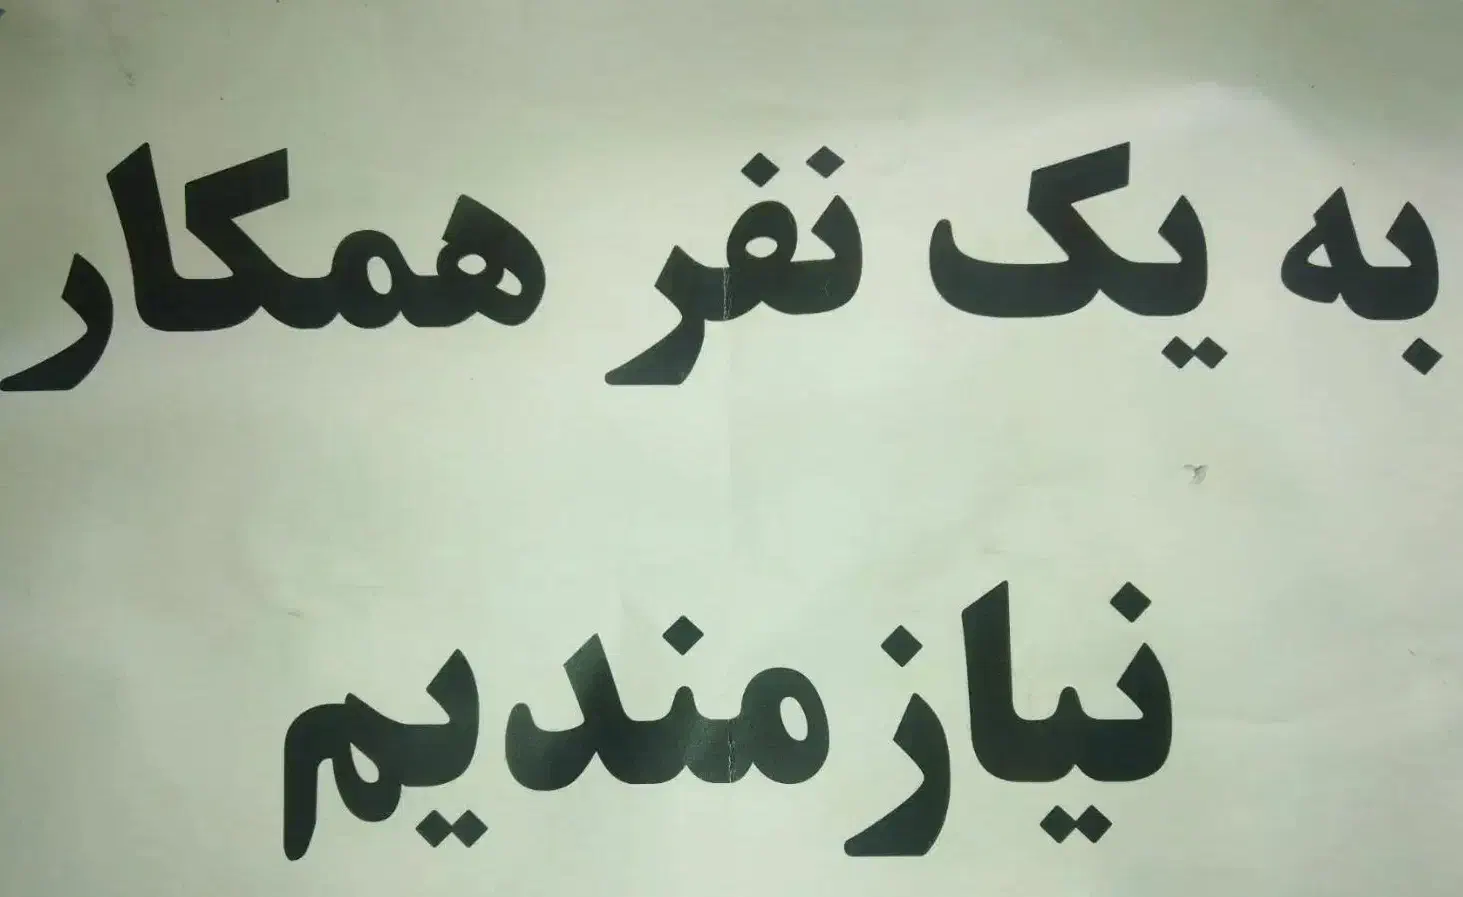 به یک نفر همکار
نیازمندیم